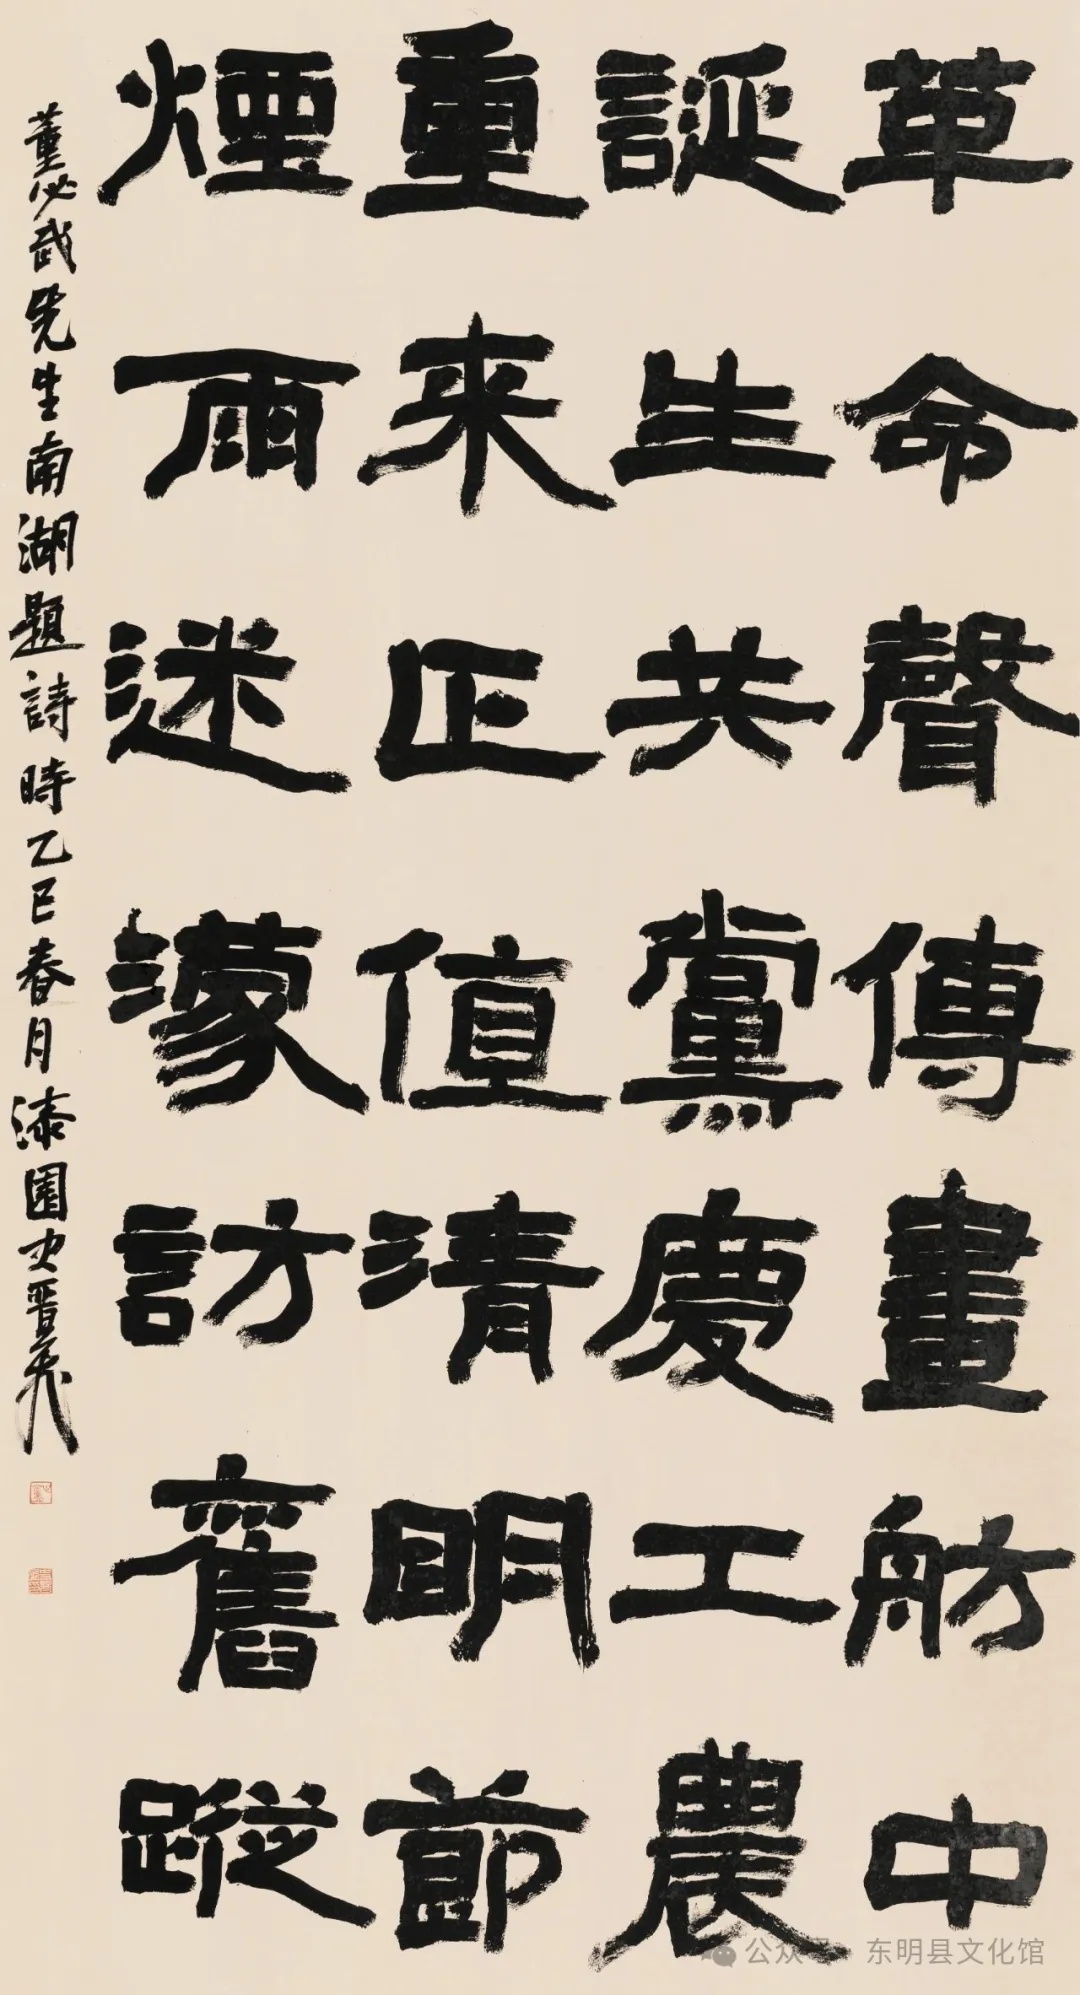 革命聲傳畫舫中
誕生共黨慶工農
重来正值清明節
煙雨迷濛訪舊蹤
董必武先生南湖題詩時乙巳春月漆園史晋義
公众号 东明县文化馆